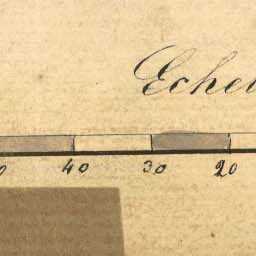 Echel
0 40 30 20